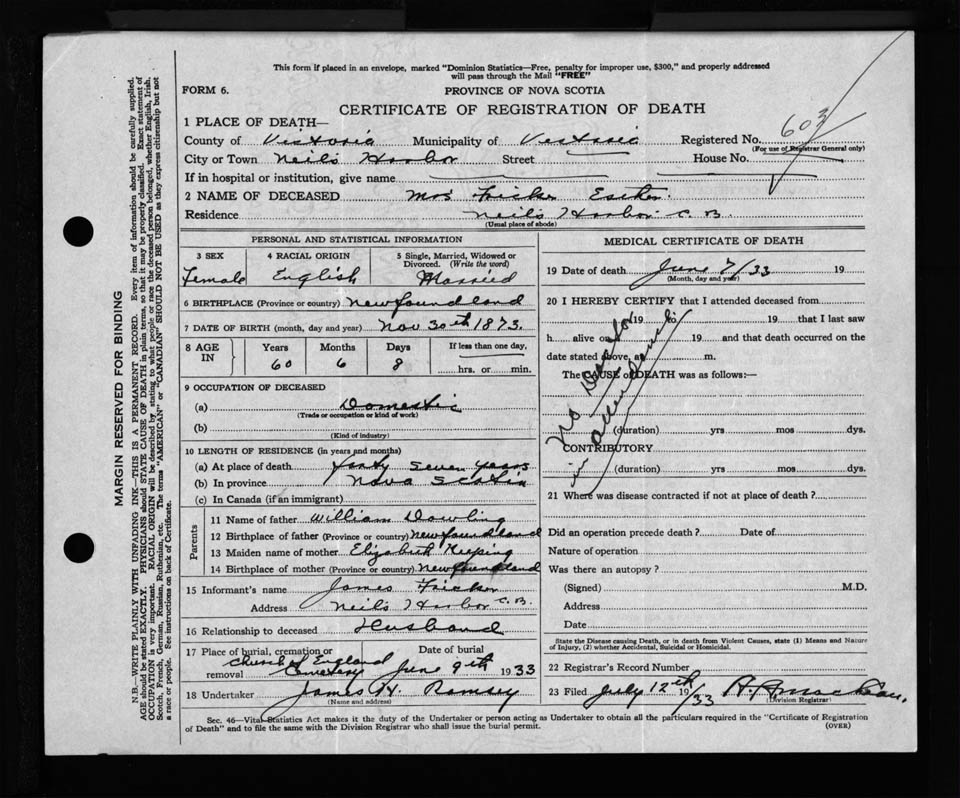 This form if placed in an envelope, marked "Dominion Statistics—Free, penalty for improper use, $300," and properly addressed
will pass through the Mail "FREE"
FORM 6. PROVINCE OF NOVA SCOTIA
CERTIFICATE OF REGISTRATION OF DEATH
603
1 PLACE OF DEATH—
County of Victoria Municipality of Victoria Registered No.
(For use of Registrar General only)
City or Town Neils Harbor Street House No.
If in hospital or institution, give name
2 NAME OF DECEASED Mrs Fricker Esther.
Residence Neil's Harbor C.B.
(Usual place of abode)
PERSONAL AND STATISTICAL INFORMATION
3 SEX 4 RACIAL ORIGIN 5 Single, Married, Widowed or
Divorced. (Write the word)
Female English Married
6 BIRTHPLACE (Province or country) Newfoundland
7 DATE OF BIRTH (month, day and year) Nov 30th 1873.
8 AGE IN Years Months Days If less than one day,
60 6 8 hrs. or min.
9 OCCUPATION OF DECEASED
(a) Domestic
(Trade or occupation or kind of work)
(b)
(Kind of industry)
10 LENGTH OF RESIDENCE (in years and months)
(a) At place of death forty seven years
(b) In province Nova Scotia
(c) In Canada (if an immigrant)
Parents
11 Name of father William Dowling
12 Birthplace of father (Province or country) Newfoundland
13 Maiden name of mother Elizabeth Keeping
14 Birthplace of mother (Province or country) Newfoundland
15 Informant's name James Fricker
Address Neils Harbor C.B.
16 Relationship to deceased Husband
17 Place of burial, cremation or removal Church of England Cemetery Date of burial June 9th 1933
18 Undertaker James H. Ramsey
(Name and address)
MEDICAL CERTIFICATE OF DEATH
19 Date of death June 7/33 19
(Month, day and year)
20 I HEREBY CERTIFY that I attended deceased from
19 to 19 that I last saw
h alive on 19 and that death occurred on the
date stated above, at m.
The CAUSE of DEATH was as follows:—
No Doctor
in attendance
(duration) yrs mos dys.
CONTRIBUTORY
(duration) yrs mos dys.
21 Where was disease contracted if not at place of death?
Did an operation precede death? Date of
Nature of operation
Was there an autopsy?
(Signed) M.D.
Address
Date
State the Disease causing Death, or in death from Violent Causes, state (1) Means and Nature
of Injury, (2) whether Accidental, Suicidal or Homicidal.
22 Registrar's Record Number
23 Filed July 12th 19/33
(Division Registrar)
Sec. 46—Vital Statistics Act makes it the duty of the Undertaker or person acting as Undertaker to obtain all the particulars required in the "Certificate of Registration
of Death" and to file the same with the Division Registrar who shall issue the burial permit. (OVER)
MARGIN RESERVED FOR BINDING
N.B.—WRITE PLAINLY WITH UNFADING INK—THIS IS A PERMANENT RECORD. Every item of information should be carefully supplied.
AGE should be stated EXACTLY. PHYSICIANS should STATE CAUSE OF DEATH in plain terms, so that it may be properly classified. Exact statement of
OCCUPATION is very important. RACIAL ORIGIN will be described by stating to what people or race the deceased person belonged, whether English, Irish,
Scotch, French, German, Russian, Ruthenian, etc. The terms "AMERICAN" or "CANADIAN" SHOULD NOT BE USED as they express citizenship but not
a race or people. See instructions on back of Certificate.